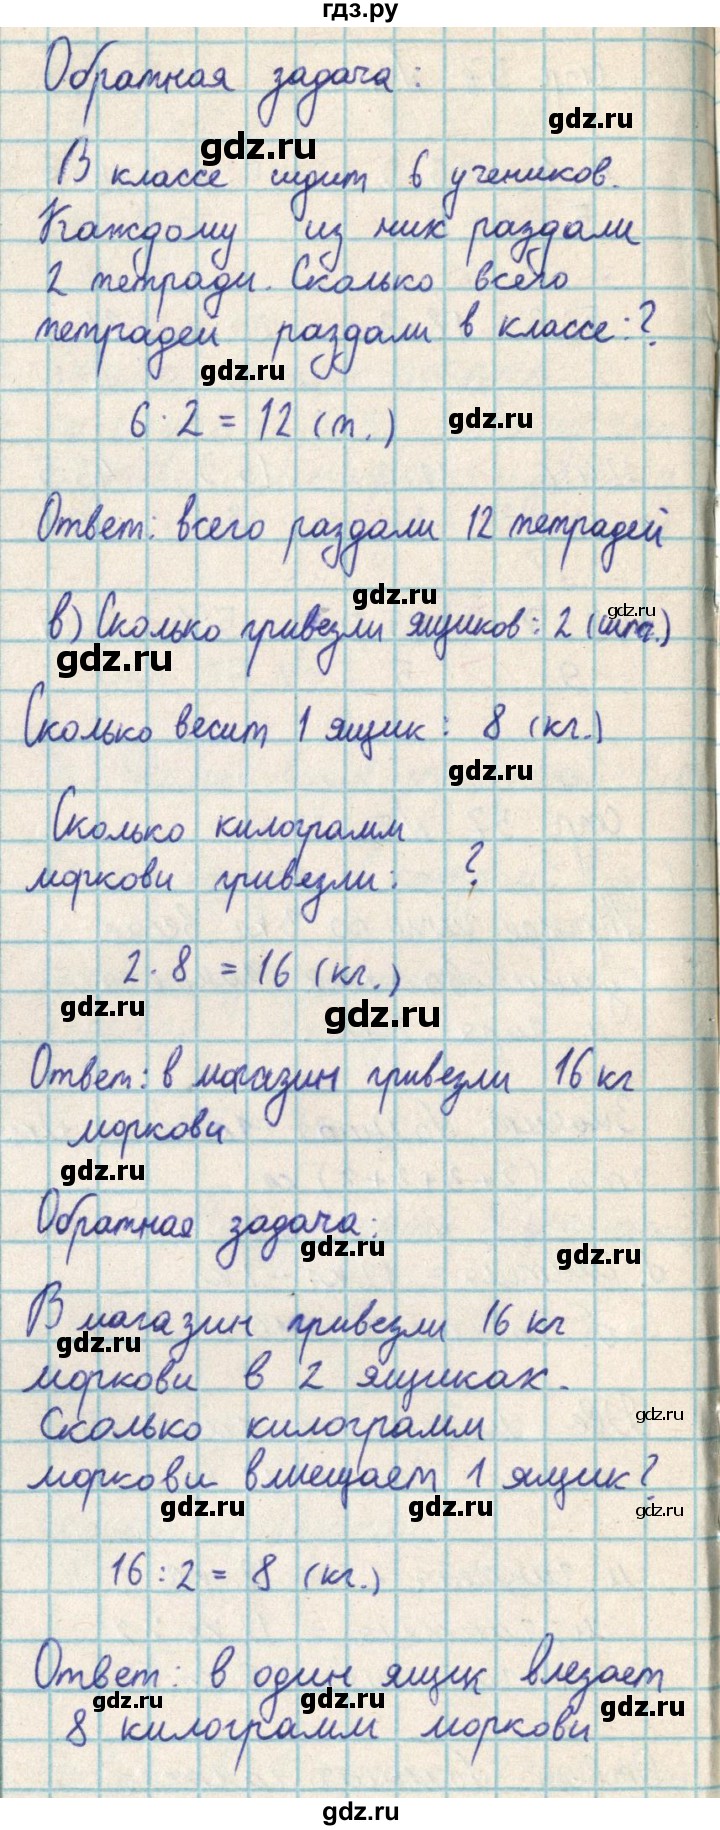 гдз.ру
Обратная задача:
gdz.ru
gdz.ru
В классе сидит 6 учеников.
Каждому из них раздали
2 тетради. Сколько всего
тетрадей раздали в классе:?
gdz.ru
6 · 2 = 12 (т.)
gdz.ru
Ответ: всего раздали 12 тетрадей
gdz.ru
gdz.ru
в) Сколько привезли ящиков: 2 (шт.)
gdz.ru
Сколько весит 1 ящик: 8 (кг.)
gdz.ru
Сколько килограмм
моркови привезли: ?
2 · 8 = 16 (кг.)
gdz.ru
gdz.ru
Ответ: в магазин привезли 16 кг
моркови
gdz.ru
Обратная задача:
gdz.ru
gdz.ru
В магазин привезли 16 кг
gdz.ru
моркови в 2 ящиках.
Сколько килограмм
gdz.ru
моркови вмещает 1 ящик?
gdz.ru
gdz.ru
gdz.ru
16 : 2 = 8 (кг.)
Ответ: в один ящик влезает
gdz.ru
gdz.ru
gdz.ru
8 килограмм моркови
gdz.ru